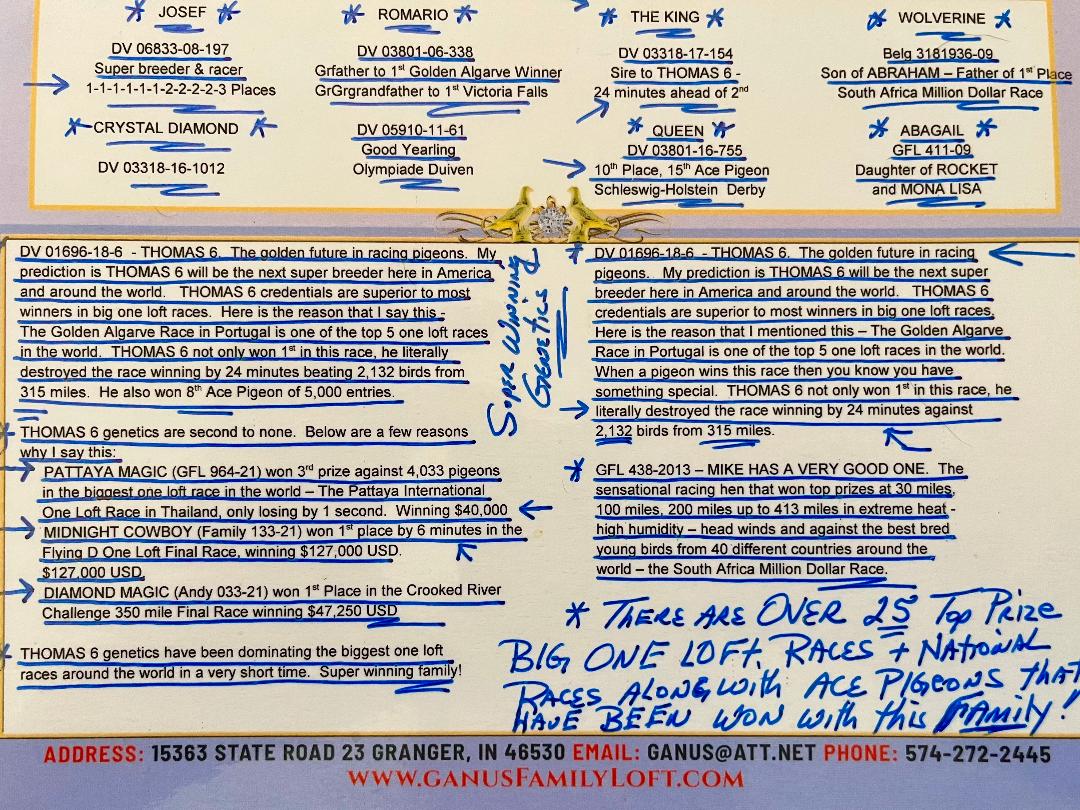 JOSEF
DV 06833-08-197
Super breeder & racer
1-1-1-1-1-1-2-2-2-2-3 Places
CRYSTAL DIAMOND
DV 03318-16-1012
ROMARIO
DV 03801-06-338
Grfather to 1st Golden Algarve Winner
GrGrgrandfather to 1st Victoria Falls
DV 05910-11-61
Good Yearling
Olympiade Duiven
THE KING
DV 03318-17-154
Sire to THOMAS 6 -
24 minutes ahead of 2nd
QUEEN
DV 03801-16-755
10th Place, 15th Ace Pigeon
Schleswig-Holstein Derby
WOLVERINE
Belg 3181936-09
Son of ABRAHAM – Father of 1st Place
South Africa Million Dollar Race
ABAGAIL
GFL 411-09
Daughter of ROCKET
and MONA LISA
DV 01696-18-6 - THOMAS 6. The golden future in racing pigeons. My
prediction is THOMAS 6 will be the next super breeder here in America
and around the world. THOMAS 6 credentials are superior to most
winners in big one loft races. Here is the reason that I say this -
The Golden Algarve Race in Portugal is one of the top 5 one loft races
in the world. THOMAS 6 not only won 1st in this race, he literally
destroyed the race winning by 24 minutes beating 2,132 birds from
315 miles. He also won 8th Ace Pigeon of 5,000 entries.
THOMAS 6 genetics are second to none. Below are a few reasons
why I say this:
PATTAYA MAGIC (GFL 964-21) won 3rd prize against 4,033 pigeons
in the biggest one loft race in the world – The Pattaya International
One Loft Race in Thailand, only losing by 1 second. Winning $40,000
MIDNIGHT COWBOY (Family 133-21) won 1st place by 6 minutes in the
Flying D One Loft Final Race, winning $127,000 USD.
$127,000 USD.
DIAMOND MAGIC (Andy 033-21) won 1st Place in the Crooked River
Challenge 350 mile Final Race winning $47,250 USD
THOMAS 6 genetics have been dominating the biggest one loft
races around the world in a very short time. Super winning family!
SUPER WINNING
GENETICS
DV 01696-18-6 - THOMAS 6. The golden future in racing
pigeons. My prediction is THOMAS 6 will be the next super
breeder here in America and around the world. THOMAS 6
credentials are superior to most winners in big one loft races.
Here is the reason that I mentioned this – The Golden Algarve
Race in Portugal is one of the top 5 one loft races in the world.
When a pigeon wins this race then you know you have
something special. THOMAS 6 not only won 1st in this race, he
literally destroyed the race winning by 24 minutes against
2,132 birds from 315 miles.
GFL 438-2013 – MIKE HAS A VERY GOOD ONE. The
sensational racing hen that won top prizes at 30 miles,
100 miles, 200 miles up to 413 miles in extreme heat -
high humidity – head winds and against the best bred
young birds from 40 different countries around the
world – the South Africa Million Dollar Race.
* THERE ARE OVER 25 Top PRIZE
BIG ONE LOFT RACES + NATIONAL
RACES ALONG with ACE PIGEONS that
HAVE BEEN WON with this FAMily!
ADDRESS: 15363 STATE ROAD 23 GRANGER, IN 46530 EMAIL: GANUS@ATT.NET PHONE: 574-272-2445
WWW.GANUSFAMILYLOFT.COM